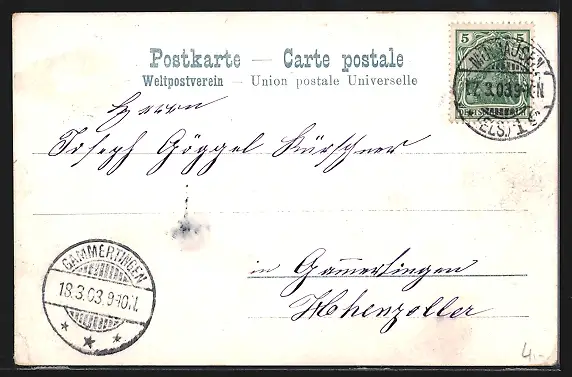 Postkarte — Carte postale
Weltpostverein — Union postale Universelle
5
MÜLHAUSEN
17.3.03.9-10N
(ELS.) 1
Herrn
Joseph Göggel Kürschner
in Gammertingen
Hohenzoller
GAMMERTINGEN
18.3.03.9-10.N.
4.-